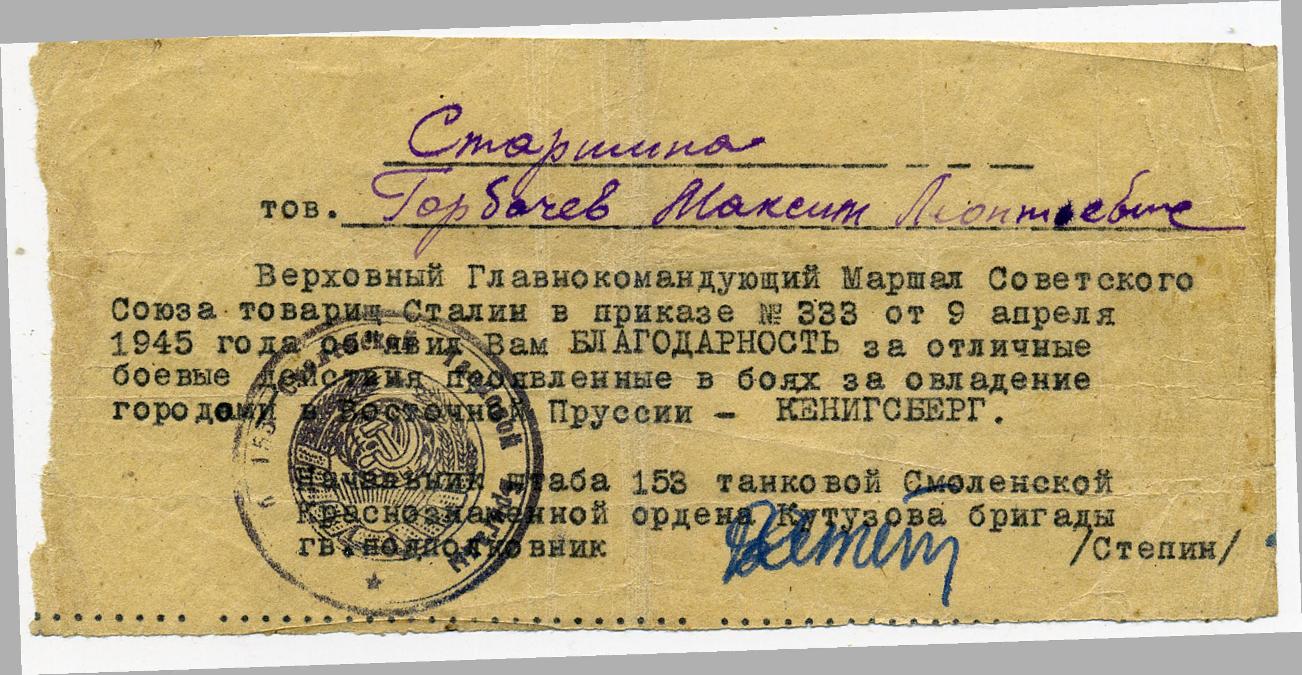 Старшина
тов. Горбачев Максим Леонтьевич
Верховный Главнокомандующий Маршал Советского
Союза товарищ Сталин в приказе № 333 от 9 апреля
1945 года об'явил Вам БЛАГОДАРНОСТЬ за отличные
боевые действия проявленные в боях за овладение
городами в Восточной Пруссии – КЕНИГСБЕРГ.
Начальник штаба 153 танковой Смоленской
Краснознаменной ордена Кутузова бригады
гв.подполковник /Степин/
153 танковой